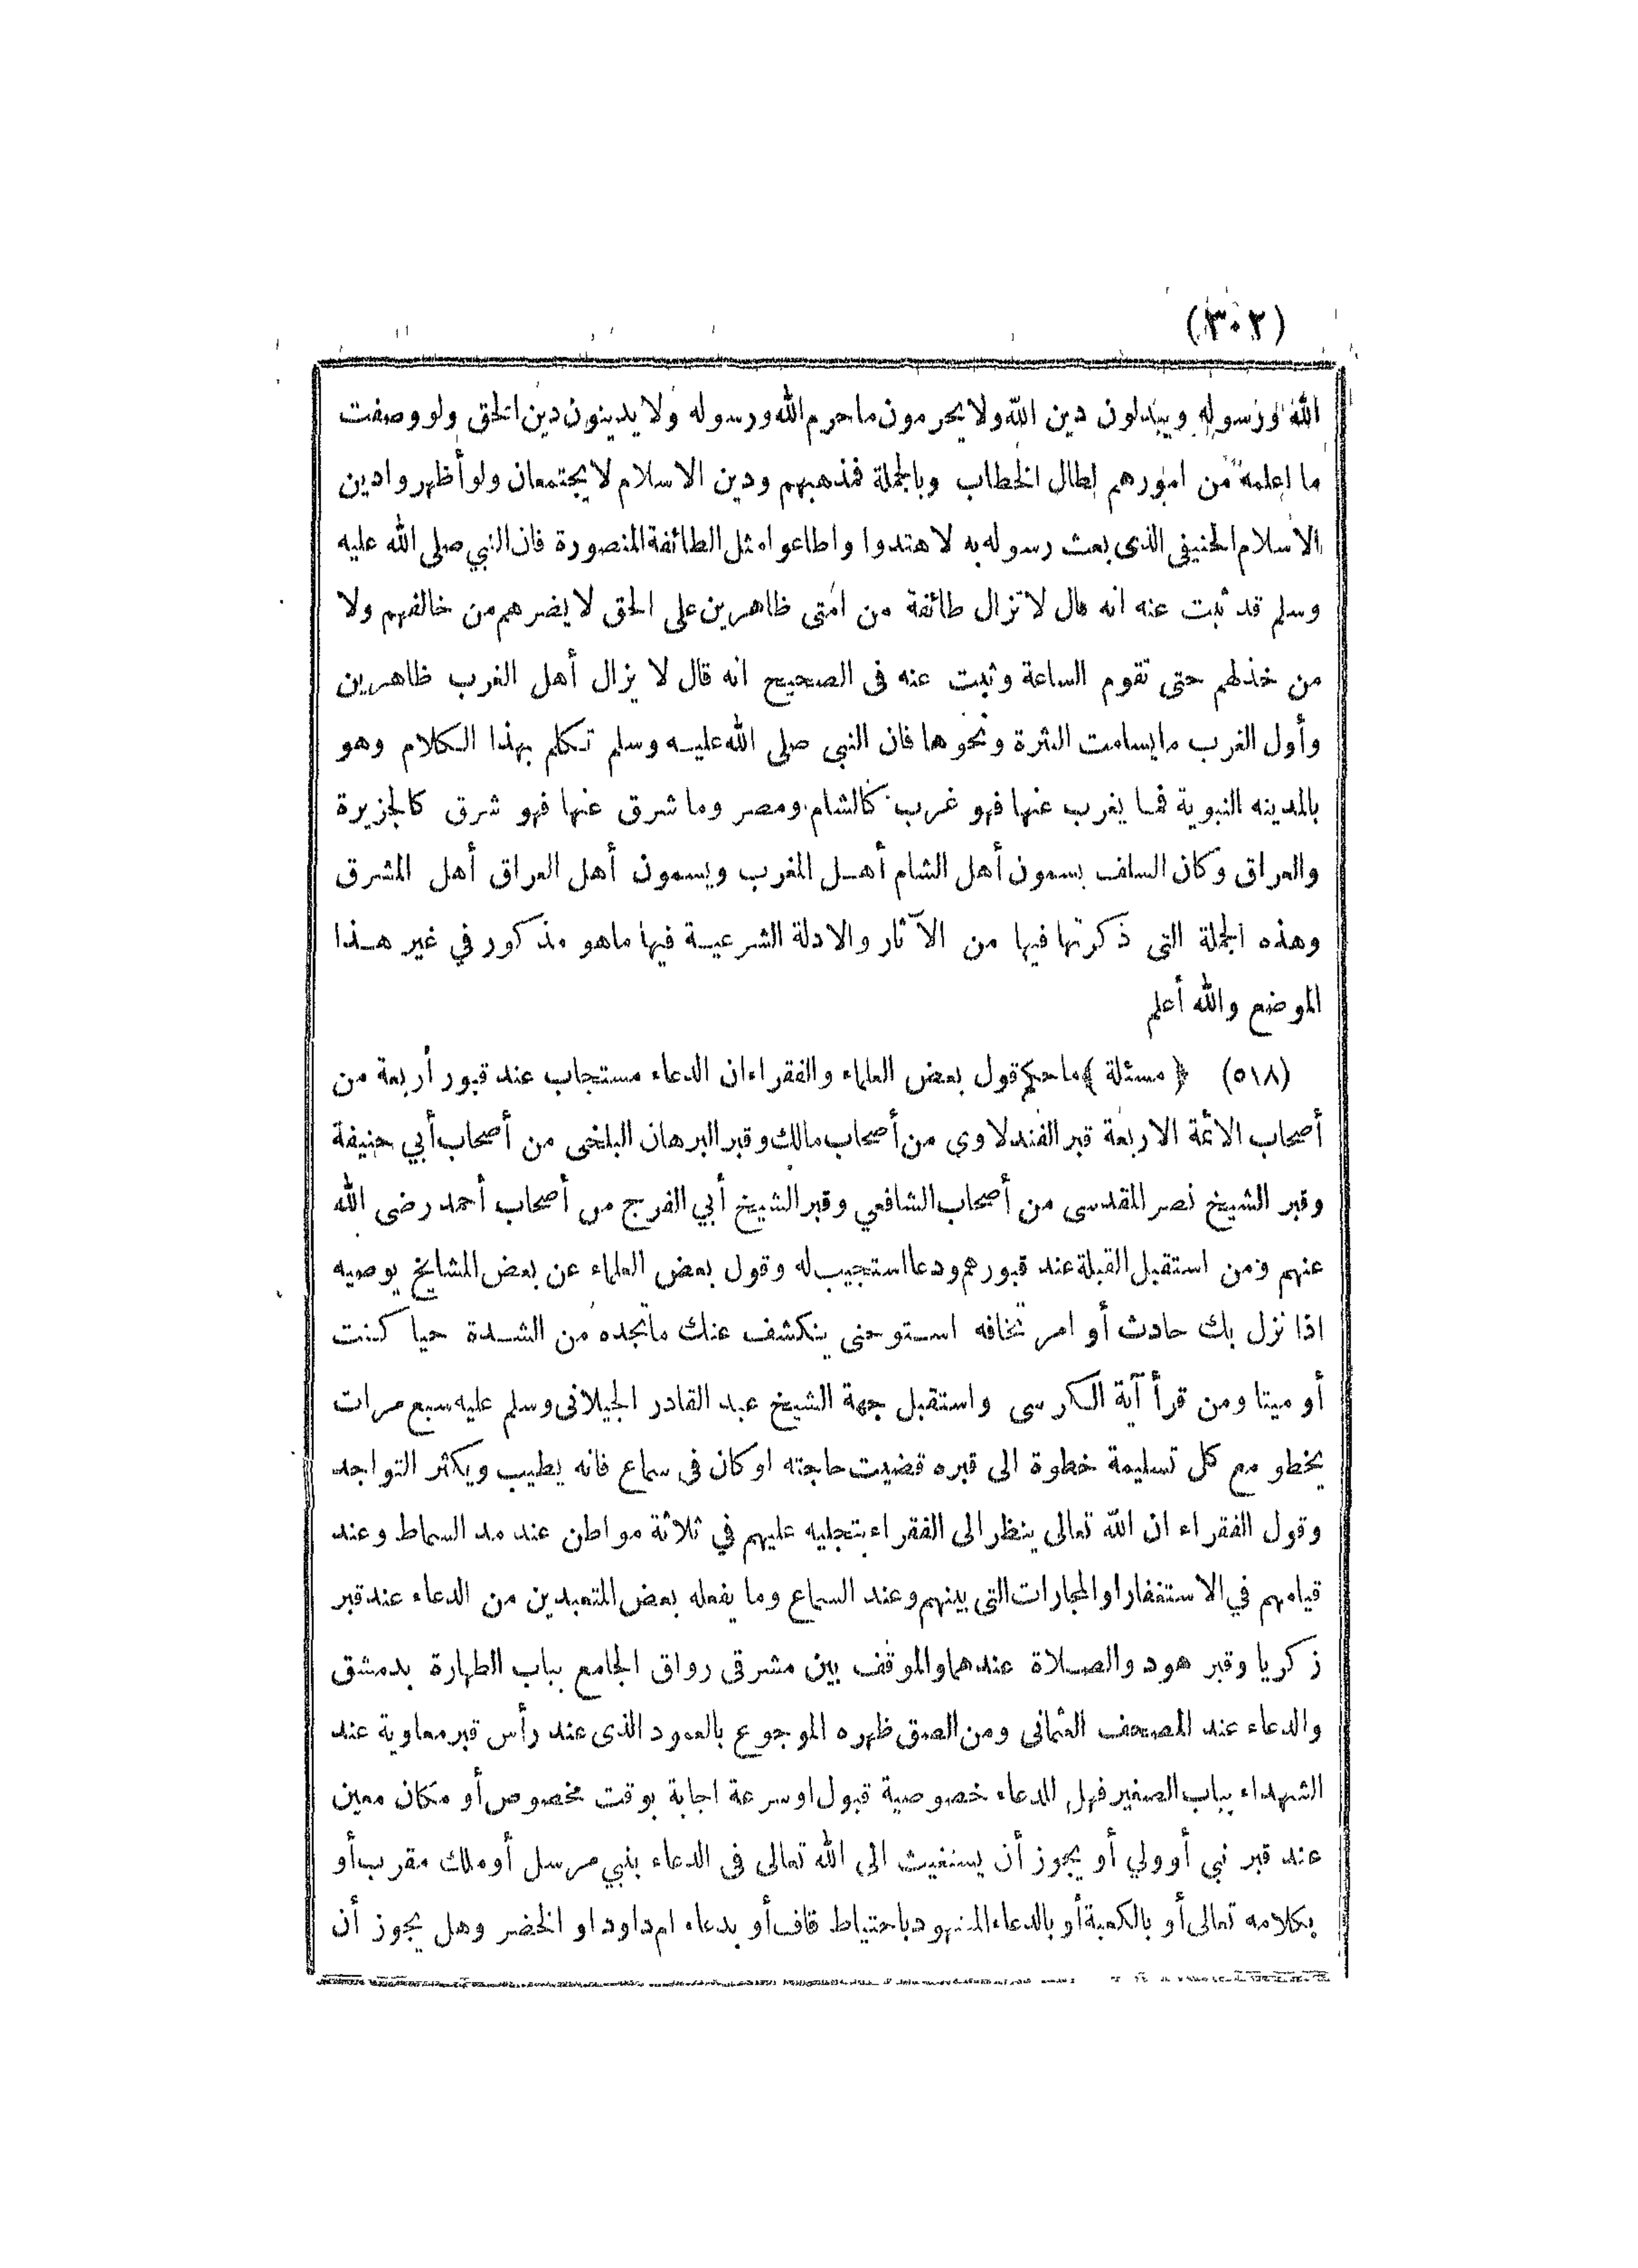 (٣٠٢)
الله ورسوله ويبدلون دين الله ولا يحرمون ما حرم الله ورسوله ولا يدينون دين الحق ولو وصفت
ما اعلمه من امورهم لطال الخطاب وبالجملة فمذهبهم ودين الاسلام لا يجتمعان ولو أظهروا دين
الاسلام الحنيفي الذى بعث رسوله به لاهتدوا واطاعوا مثل الطائفة المنصورة فان النبي صلى الله عليه
وسلم قد ثبت عنه انه قال لا تزال طائفة من امتى ظاهرين على الحق لا يضرهم من خالفهم ولا
من خذلهم حتى تقوم الساعة وثبت عنه فى الصحيح انه قال لا يزال أهل الغرب ظاهرين
وأول الغرب ما يسامت البثرة ونحوها فان النبى صلى الله عليه وسلم تكلم بهذا الكلام وهو
بالمدينه النبوية فما يغرب عنها فهو غرب كالشام ومصر وما شرق عنها فهو شرق كالجزيرة
والعراق وكان السلف يسمون أهل الشام أهل المغرب ويسمون أهل العراق أهل المشرق
وهذه الجملة التى ذكرتها فيها من الآثار والادلة الشرعية فيها ما هو مذكور في غير هذا
الموضع والله أعلم
(٥١٨) ﴿ مسئلة ﴾ ما حكم قول بعض العلماء والفقراء ان الدعاء مستجاب عند قبور أربعة من
أصحاب الأئمة الاربعة قبر الفندلاوى من أصحاب مالك وقبر البرهان البلخى من أصحاب أبي حنيفة
وقبر الشيخ نصر المقدسى من أصحاب الشافعي وقبر الشيخ أبي الفرج من أصحاب أحمد رضى الله
عنهم ومن استقبل القبلة عند قبورهم ودعا استجيب له وقول بعض العلماء عن بعض المشايخ يوصيه
اذا نزل بك حادث أو امر تخافه استوحنى ينكشف عنك ما تجده من الشدة حيا كنت
أو ميتا ومن قرأ آية الكرسى واستقبل جهة الشيخ عبد القادر الجيلانى وسلم عليه سبع مرات
يخطو مع كل تسليمة خطوة الى قبره قضيت حاجته او كان فى سماع فانه يطيب ويكثر التواجد
وقول الفقراء ان الله تعالى ينظر الى الفقراء بتجليه عليهم في ثلاثة مواطن عند مد السماط وعند
قيامهم في الاستغفار او المجارات التى بينهم وعند السماع وما يفعله بعض المتعبدين من الدعاء عند قبر
زكريا وقبر هود والصلاة عندهما والموقف بين مشرقى رواق الجامع بباب الطهارة بدمشق
والدعاء عند المصحف العثمانى ومن الصق ظهره الموجوع بالعمود الذى عند رأس قبر معاوية عند
الشهداء بباب الصغير فهل للدعاء خصوصية قبول او سرعة اجابة بوقت مخصوص أو مكان معين
عند قبر نبي أو ولي أو يجوز أن يستغيث الى الله تعالى فى الدعاء بنبي مرسل أو ملك مقرب أو
بكلامه تعالى أو بالكعبة أو بالدعاء المنهود باحتياط قاف أو بدعاء ام داود او الخضر وهل يجوز أن